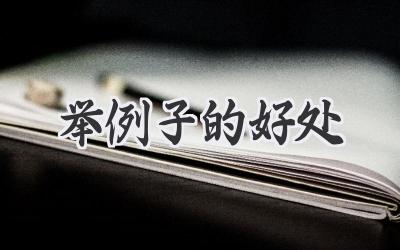 举例子的好处